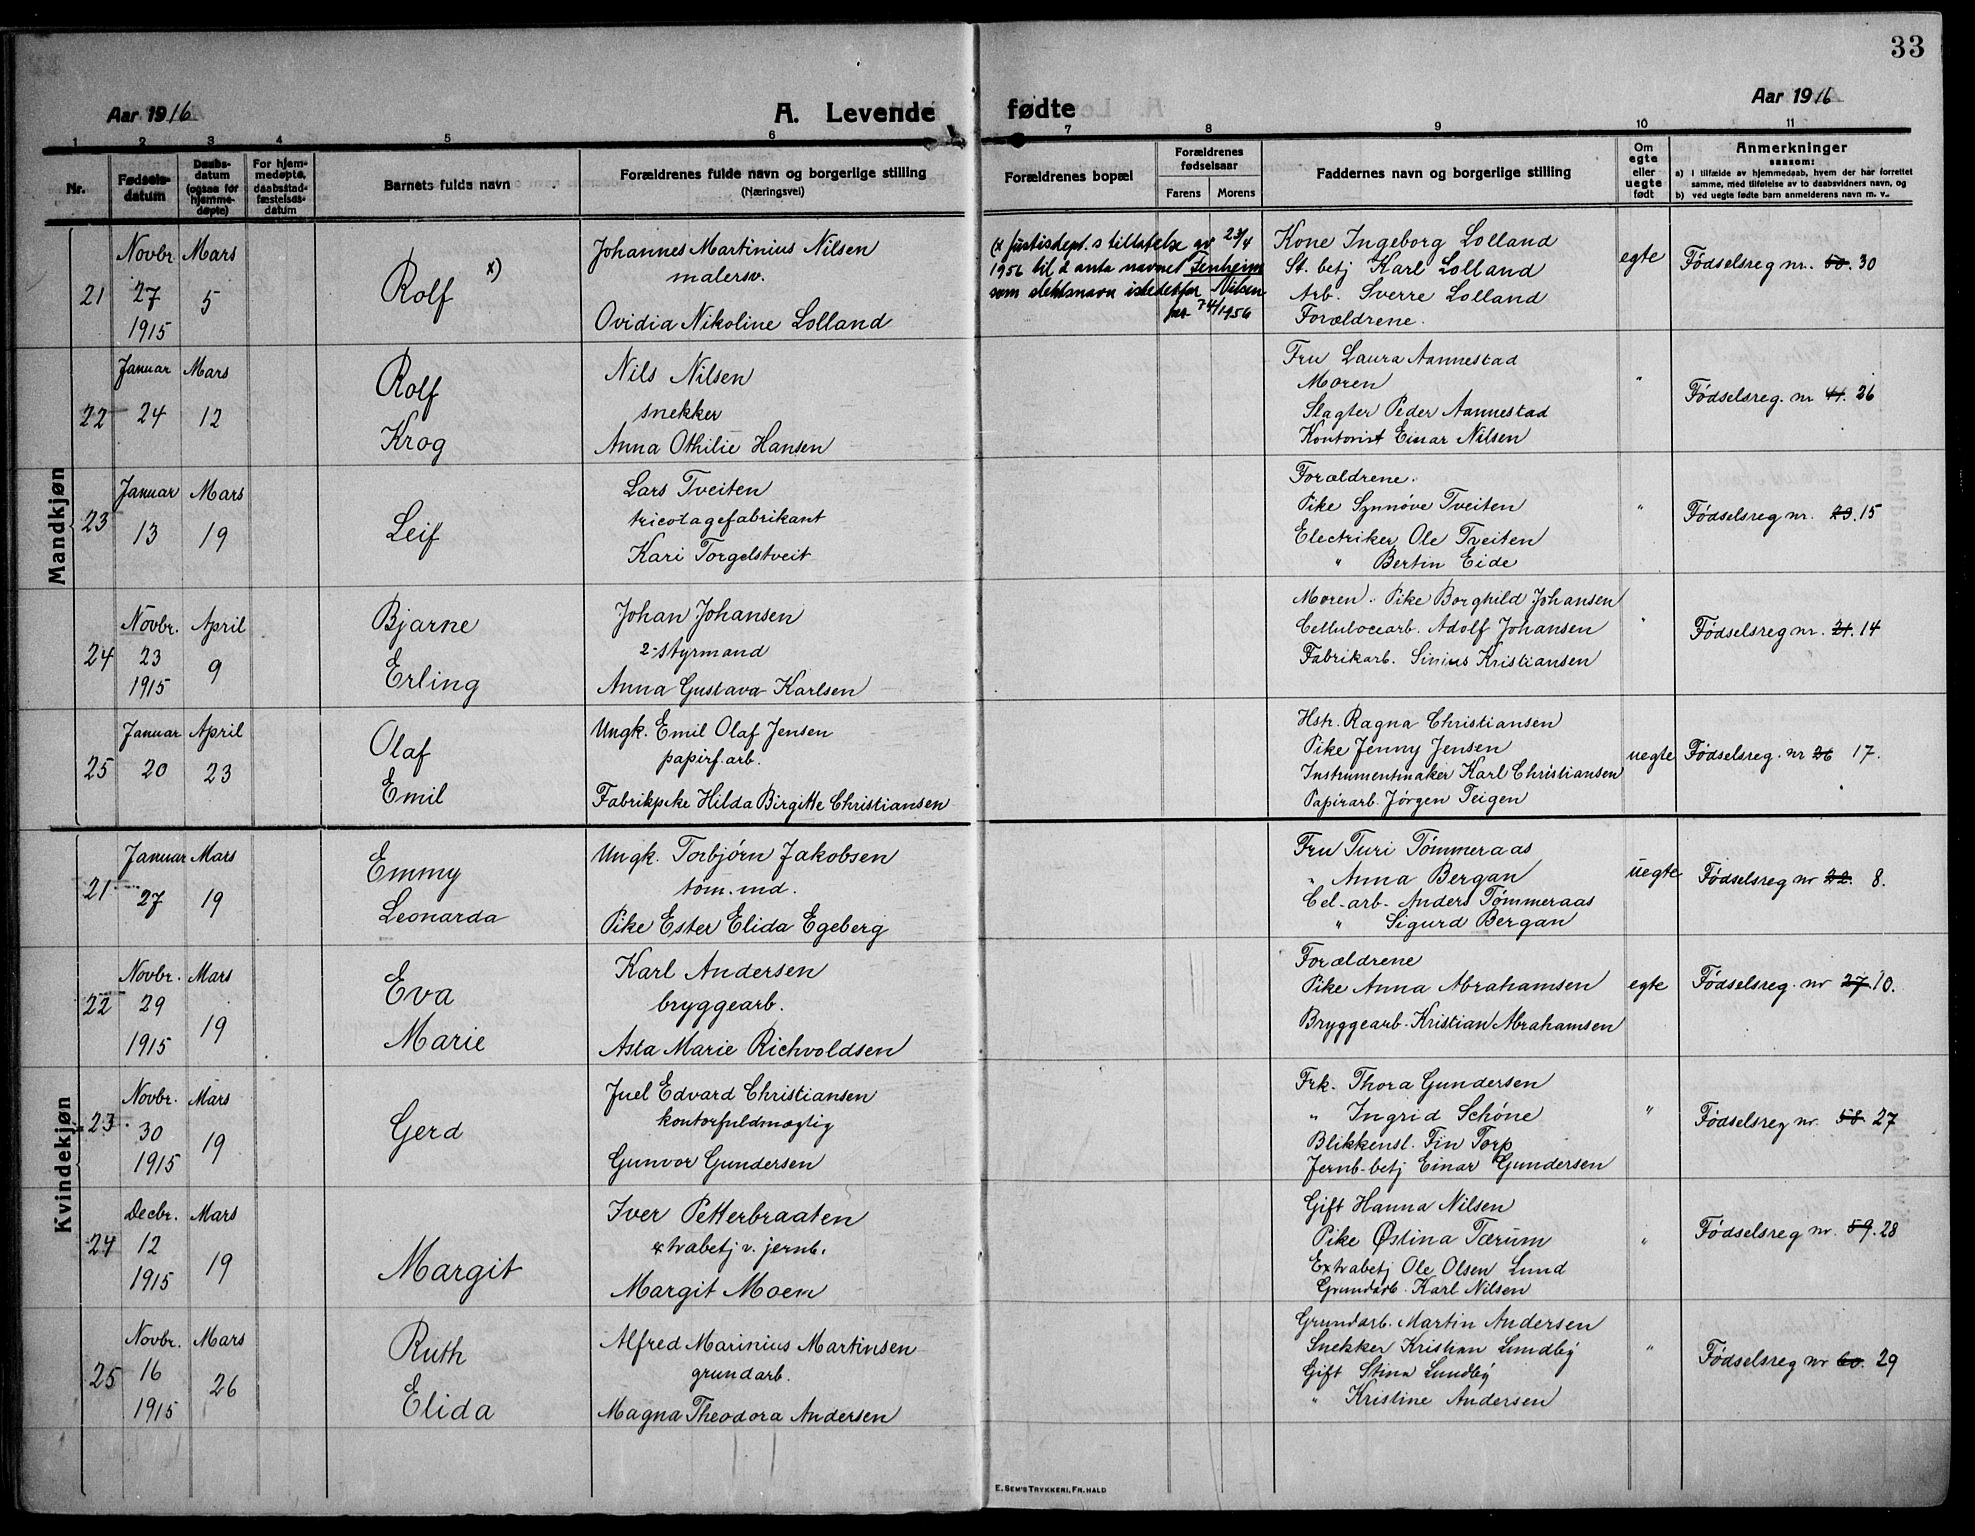 33
Aar 1916
A. Levende fødte
Aar 1916
1 2 3 4 5 6 7 8 9 10 11
Nr.
Fødsels-
datum
Daabs-
datum
(ogsaa for
hjemme-
døpte)
For hjem-
medøpte,
daabsstad-
fæstelses-
datum
Barnets fulde navn
Forældrenes fulde navn og borgerlige stilling
(Næringsvei)
Forældrenes bopæl
Forældrenes
fødselsaar
Farens Morens
Faddernes navn og borgerlige stilling
Om
egte
eller
uegte
født
Anmerkninger
saasom:
a) I tilfælde av hjemmedaab, hvem der har forrettet
samme, med tilføielse av to daabsvidners navn, og
b) ved uegte fødte barn anmelderens navn m. v.
Mandkjøn
21
Novbr.
27
1915
Mars
5
Rolf x)
Johannes Martinius Nilsen
malersv.
Ovidia Nikoline Lolland
(x Justisdept.s tillatelse av 23/4
1956 til å anta navnet Fenheim
som slektsnavn istedetfor Nilsen
1956
Kone Ingeborg Lolland
St. betj Karl Lolland
Arb. Sverre Lolland
Forældrene.
egte
Fødselsreg nr. 50. 30
22
Januar
24
Mars
12
Rolf
Krog
Nils Nilsen
snekker
Anna Othilie Hansen
Fru Laura Aannestad
Moren
Slagter Peder Aannestad
Kontorist Einar Nilsen
"
Fødselsreg. nr 41. 26
23
Januar
13
Mars
19
Leif
Lars Tveiten
tricotagefabrikant
Kari Torgelstveit
Forældrene.
Pike Synnøve Tveiten
Electriker Ole Tveiten
" Bertin Eide
"
Fødselsreg nr. 23. 15
24
Novbr.
23
1915
April
9
Bjarne
Erling
Johan Johansen
2-styrmand
Anna Gustava Karlsen
Moren. Pike Borghild Johansen
Cellulocearb. Adolf Johansen
Fabrikarb. Sinius Kristiansen
"
Fødselsreg nr. 21. 14
25
Januar
20
April
23
Olaf
Emil
Ungk. Emil Olaf Jensen
papirf. arb.
Fabrikpike Hilda Birgitte Christiansen
Hstr. Ragna Christiansen
Pike Jenny Jensen
Instrumentmaker Karl Christiansen
Papirarb. Jørgen Teigen
uegte
Fødselsreg. nr 26 17.
Kvindekjøn
21
Januar
27
Mars
19
Emmy
Leonarda
Ungk. Torbjørn Jakobsen
tøm. md.
Pike Ester Elida Egeberg
Fru Turi Tømmeraas
" Anna Bergan
Cel-arb- Anders Tømmeraas
" Sigurd Bergan
uegte
Fødselsreg nr 22. 8.
22
Novbr.
29
1915
Mars
19
Eva
Marie
Karl Andersen
bryggearb.
Asta Marie Richvoldsen
Forældrene
Pike Anna Abrahamsen
Bryggearb. Kristian Abrahamsen
egte
Fødselsreg. nr 27. 10.
23
Novbr.
30
1915
Mars
19
Gerd
Juel Edvard Christiansen
kontorfuldmægtig
Gunvor Gundersen
Frk. Thora Gundersen
" Ingrid Schøne
Blikkensl. Fin Torp
Jernb-betj Einar Gundersen
"
Fødselsreg nr. 58. 27
24
Decbr.
12
1915
Mars
19
Margit
Iver Petterbraaten
extrabetj v. jernb.
Margit Moem
Gift Hanna Nilsen
Pike Østina Tærum
Extrabetj Ole Olsen Lund
Grundarb. Karl Nilsen
"
Fødselsreg nr. 59. 28
25
Novbr.
16
1915
Mars
26
Ruth
Elida
Alfred Marinius Martinsen
grundarb.
Magna Theodora Andersen
Grundarb. Martin Andersen
Snekker Kristian Lundby
Gift Stina Lundby
" Kristine Andersen
"
Fødselsreg nr 60. 29
E. SEM'S TRYKKERI, FR. HALD